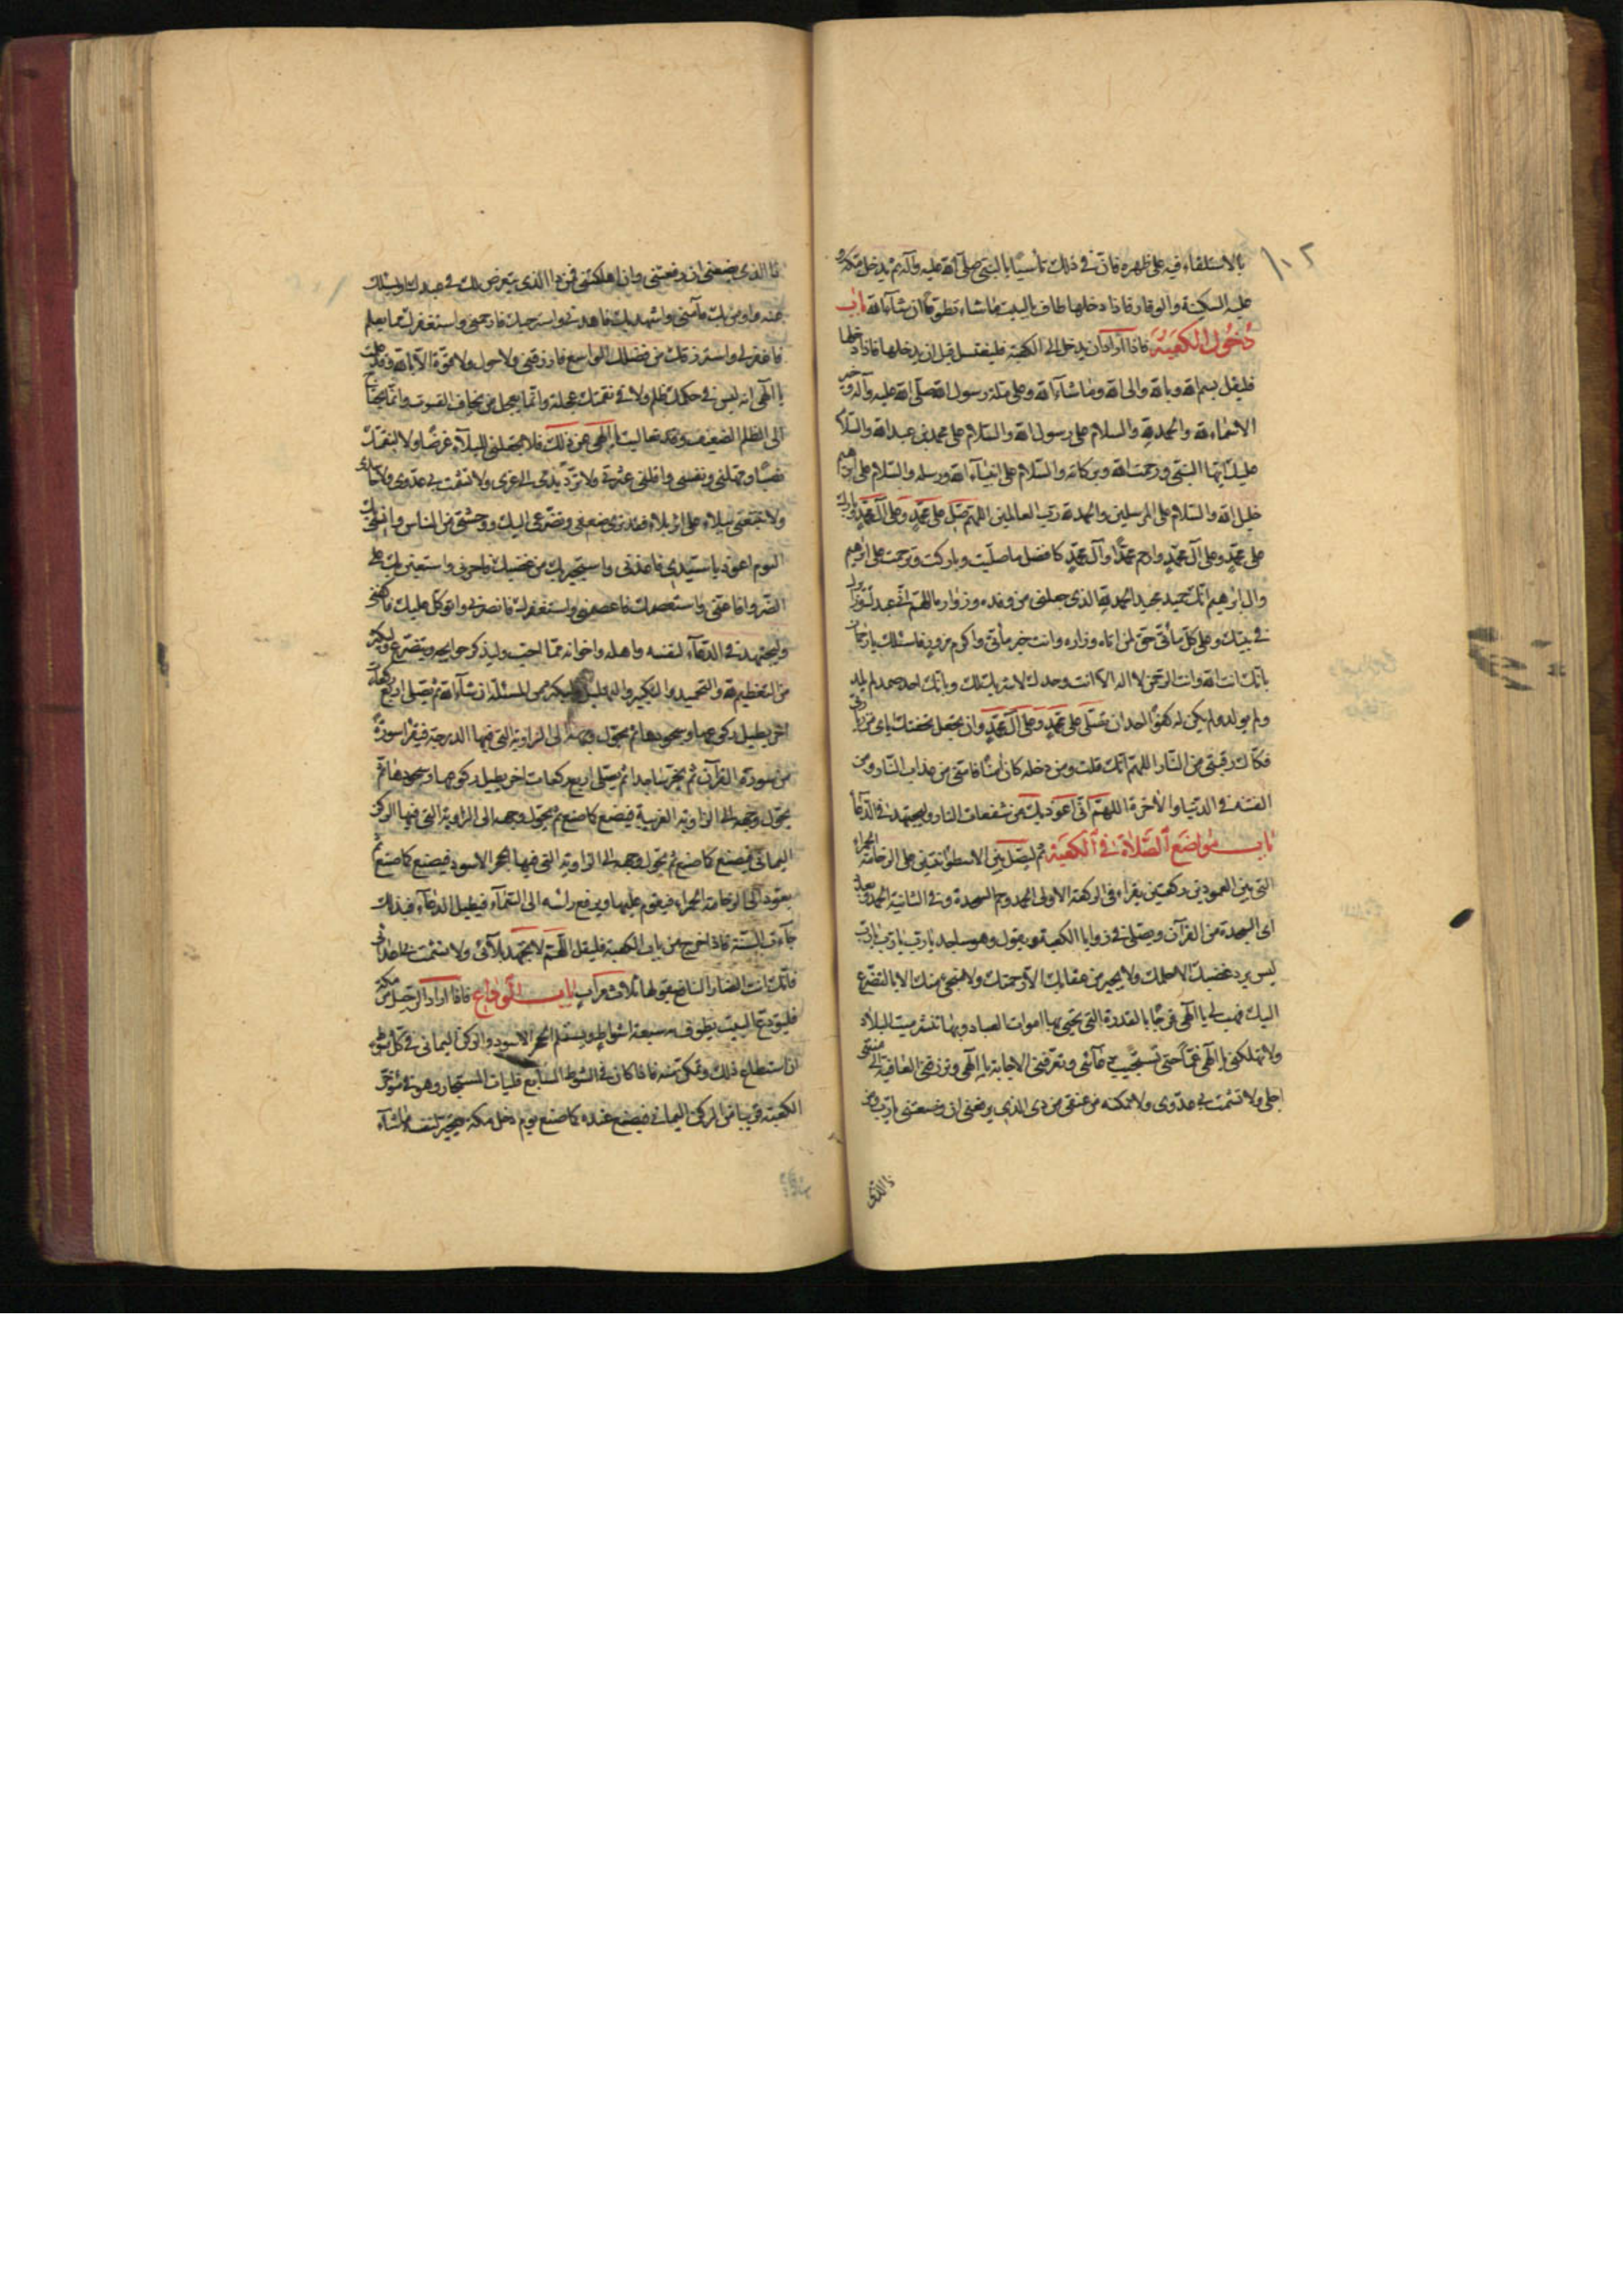 ١٠٢
بالاستلقاء فيه على ظهره فانّ في ذلك تأسّيًا بالنبى صلّى الله عليه وآله ثم يدخل مكّة و
عليه السكينة والوقار فاذا دخلها طاف بالبيت ماشاء تطوّعًا ان شاء الله باب
دخول الكعبة فاذا اراد ان يدخل الى الكعبة فليغتسل قبل ان يدخلها فاذا دخلها
فليقل بسم الله وبالله والى الله وما شاء الله وعلى ملة رسول الله صلّى الله عليه وآله وخير
الاسماء لله والحمد لله والسلام على رسول الله والسّلام على محمد بن عبد الله والسّلام
عليك ايّها النبىّ ورحمة الله وبركاته والسّلام على انبياء الله ورسله والسّلام على ابرهيم
خليل الله والسّلام على المرسلين والحمد لله ربّ العالمين اللهمّ صلّ على محمّد وعلى آل محمّد وبارك
على محمّد وعلى آل محمّد وارحم محمّدًا وآل محمّد كافضل ماصلّيت وباركت وترحمت على ابرهيم
وآل ابرهيم انّك حميد مجيد الحمد لله الذى جعلنى من وفده وزواره اللهمّ انى عبدك وزائرك
فى بيتك وعلى كلّ مأتىّ حقّ لمن اتاه وزاره وانت خير مأتىّ واكرم مزور فاسئلك يارحمان
بانّك انت الله وانت الرحمن لا اله الا انت وحدك لا شريك لك وبانّك احد صمد لم تلد
ولم يولد ولم يكن له كفوًا احد ان تصلّى على محمّد وعلى آل محمّد وان تجعل تحفتك اياى من زيارتى
فكاك رقبتى من النّار اللهمّ انّك قلت ومن دخله كان آمنًا فآمنّى من عذاب النّار ومن
الفتنة فى الدنيا والآخرة اللهمّ انّى اعوذ بك من سفعات النار وليجتهد فى الدعاء
باب مواضع الصّلاة فى الكعبة ثم ليصل بين الاسطوانتين على الرخامة الحمراء
التى بين العمودين ركعتين يقراء فى الركعة الاولى الحمد وحم السجدة وفى الثانية الحمد وبعدد
اى السجدة من القرآن ويصلى فى زوايا الكعبة ويقول وهو ساجد يارب يارب يارب
ليس يرد غضبك الا حلمك ولا يجير من عقابك الا رحمتك ولا منجى منك الا بالتضرّع
اليك فهب لى يا الهى فرجًا بالقدرة التى تحيى بها اموات العباد وبها تنشر ميت البلاد
ولا تهلكنى يا الهى غمّاً حتى تستجيب دعائى وتعرّفنى الاجابة يا الهى وترزقنى العافية الى منتهى
اجلى ولا تشمت بى عدّوى ولا تمكنه من عنقى من ذى الذى يرفعنى ان وضعتنى يا رب ومن
ذا الذى
ذا الذى يضعنى ان رفعتنى وان اهلكتنى فمن ذا الذى يتعرض لك فى عبدك او يسئلك
عنه واومن بك فآمنّى واستهديك فاهدنى واسترحمك فارحمنى واستغفرك مما تعلم
فاغفر لى واسترزقك من فضلك الواسع فارزقنى ولا حول ولا قوّة الا بالله وقد علمت
يا الهى انه ليس فى حكمك ظلم ولا فى نقمتك عجلة وانّما يعجل من يخاف الفوت وانّما يحتاج
الى الظلم الضعيف وقد تعاليت يا الهى عن ذلك فلا تجعلنى للبلاء غرضًا ولا لنقمتك
نصبًا ومهّلنى ونفّسنى واقلنى عثرتى ولا تردّ يدى الى نحرى ولا تشمت بى عدّوى ولا حاسدى
ولا تتبعنى ببلاء على اثر بلاء فقد ترى ضعفى وتضرّعى اليك ووحشتى من الناس وانسى بك
اليوم اعوذ بك يا سيّدى فاعذنى واستجير بك من غضبك فاجرنى واستعين بك على
الضّر فاعنّى واستعصمك فاعصمنى واستغفرك فانصرنى واتوكّل عليك فاكفنى
وليجتهد فى الدّعاء لنفسه واهله واخوانه ممّا احبّ وليذكر حوايجه ويتضرّع وليكثر
من التعظيم لله والتحميد والتكبير والتهليل وليكثر من المسئلة ان شاء الله ثم يصّلى اربع ركعات
اخر يطيل ركوعها وسجودها ثم يحوّل وجهه الى الزاوية التى فيها الدرجة فيقرأ سورةً
من سور القرآن ثم يخرّ ساجدا ثم يصلى اربع ركعات اخر يطيل ركوعها وسجودها ثم
يحوّل وجهه الى الزاوية الغربية فيصنع كما صنع ثم يحوّل وجهه الى الزاوية التى فيها الركن
اليمانى فيصنع كما صنع ثم يحوّل وجهه الى الزاوية التى فيها الحجر الاسود فيصنع كما صنع ثمّ
يعود الى الرخامة الحمراء فيقوم عليها ويرفع رأسه الى السّماء فيطيل الدعاء فبذلك
جاءت السّنة فاذا خرج من باب الكعبة فليقل اللّهمّ لا تجهد بلائى ولا تشمت بى اعدائى
فانّك انت الضار النافع يقولها ثلاث مرّات باب الوداع فاذا اراد الرّحيل من مكة
فليودّع البيت يطوف به سبعة اشواط ويستلم الحجر الاسود والركن اليمانى فى كلّ شوط
ان استطاع ذلك وتمكّن منه فاذا كان فى الشوط السّابع فليات المستجار وهو فى مؤخّر
الكعبة قريبا من الركن اليمانى فيصنع عنده كما صنع يوم دخل مكة ويتخير لنفسه ماشاء